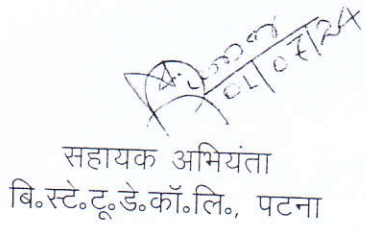 01/07/24
सहायक अभियंता
बि॰स्टे॰टू॰डे॰कॉ॰लि॰, पटना